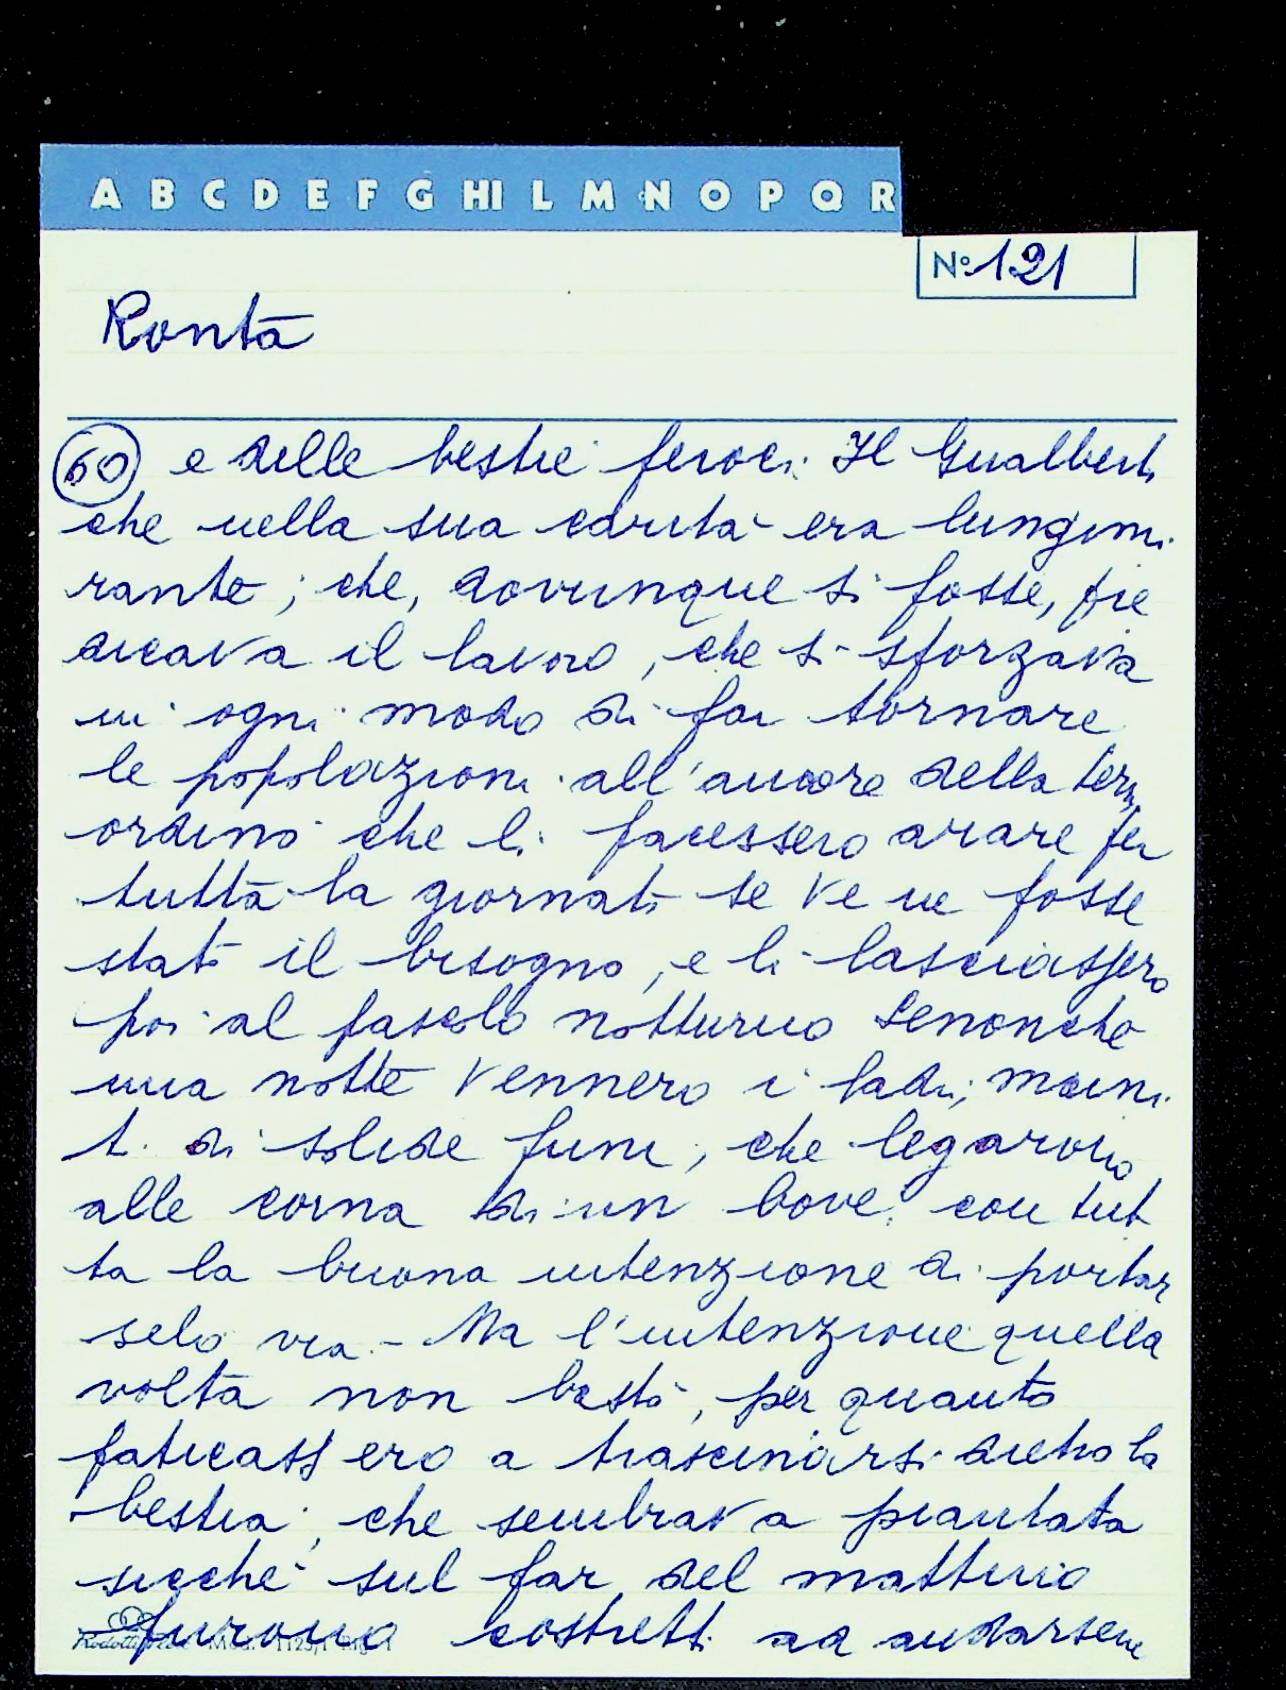 A B C D E F G HI L M N O P Q R
N° 121
Ronta
60 e delle bestie feroci. Il Gualberti
che nella sua carità era lungimi
rante; che, dovunque si fosse, pre
dicava il lavoro, che si sforzava
in ogni modo di far tornare
le popolazioni all'amore della terra
ordinò che li facessero arare per
tutta la giornata se ve ne fosse
stato il bisogno, e li lasciassero
poi al pascolo notturno Senonche
una notte vennero i ladri, muni
ti di solide funi, che legarono
alle corna di un bove, con tut
ta la buona intenzione di portar
selo via. - Ma l'intenzione quella
volta non bastò, per quanto
faticassero a trascinarsi dietro la
bestia, che sembrava piantata
sicché sul far del mattino
furono costretti ad andarsene